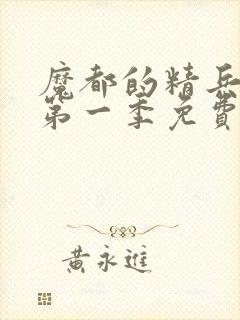 魔都的精兵
第一季免費
黃永進